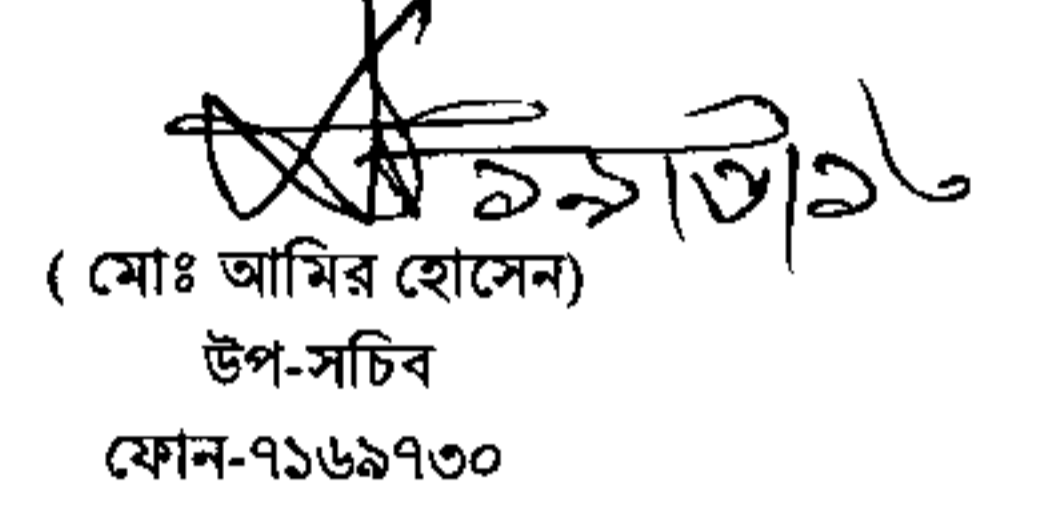 ১৯/৩/১৬
( মোঃ আমির হোসেন)
উপ-সচিব
ফোন-৭১৬৯৭৩০